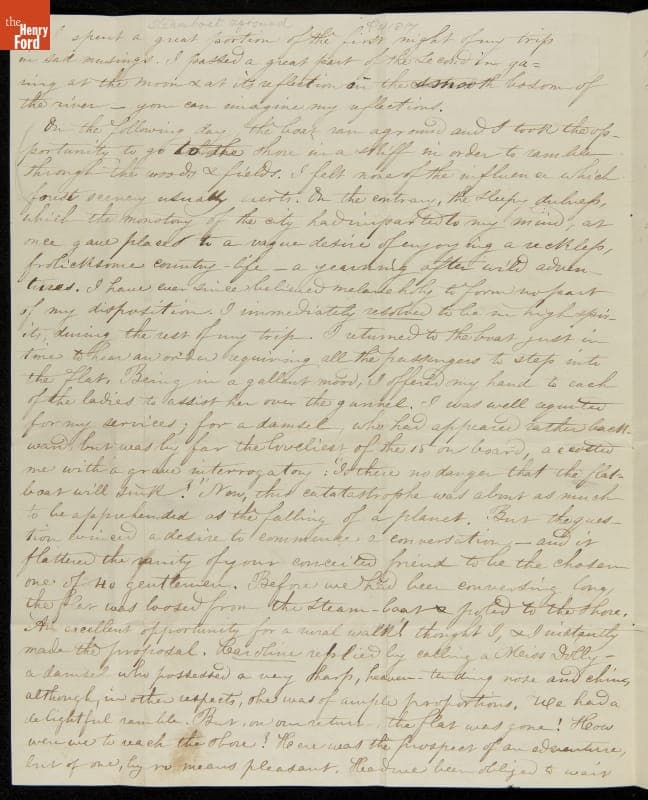 the
Henry
Ford
Steamboat aground
I spent a great portion of the first night of my trip
in sad musings. I passed a great part of the second in ga-
zing at the moon & at its reflection on the smooth bosom of
the river — you can imagine my reflections.
On the following day, the boat ran aground and I took the op-
portunity to go to the shore in a skiff in order to ramble
through the woods & fields. I felt none of the influence which
forest scenery usually exerts. On the contrary, the sleepy dulness,
which the monotony of the city had imparted to my mind, at
once gave place to a vague desire of enjoying a reckless,
frolicksome country-life — a yearning after wild adven-
tures. I have ever since believed melancholy to form no part
of my disposition. I immediately resolved to be in high spir-
its, during the rest of my trip. I returned to the boat just in
time to hear an order requiring all the passengers to step into
the flat. Being in a gallant mood, I offered my hand to each
of the ladies to assist her over the gunnel. I was well requited
for my services; for a damsel, who had appeared rather back-
ward, but was by far the loveliest of the 15 on board, accosted
me with a grave interrogatory: "Is there no danger that the flat-
boat will sink?" Now, this catatastrophe was about as much
to be apprehended as the falling of a planet. But the ques-
tion evinced a desire to commence a conversation — and it
flattered the vanity of your conceited friend to be the chosen
one of 40 gentlemen. Before we had been conversing long,
the flat was loosed from the steam-boat & poled to the shore.
An excellent opportunity for a rural walk! thought I, & I instantly
made the proposal. Caroline replied by calling a Miss Dolly —
a damsel who possessed a very sharp, heaven-tending nose and chin,
although, in other respects, she was of ample proportions. We had a
delightful ramble. But, on our return, the flat was gone! How
were we to reach the shore? Here was the prospect of an adventure,
but of one, by no means pleasant. Had we been obliged to wait